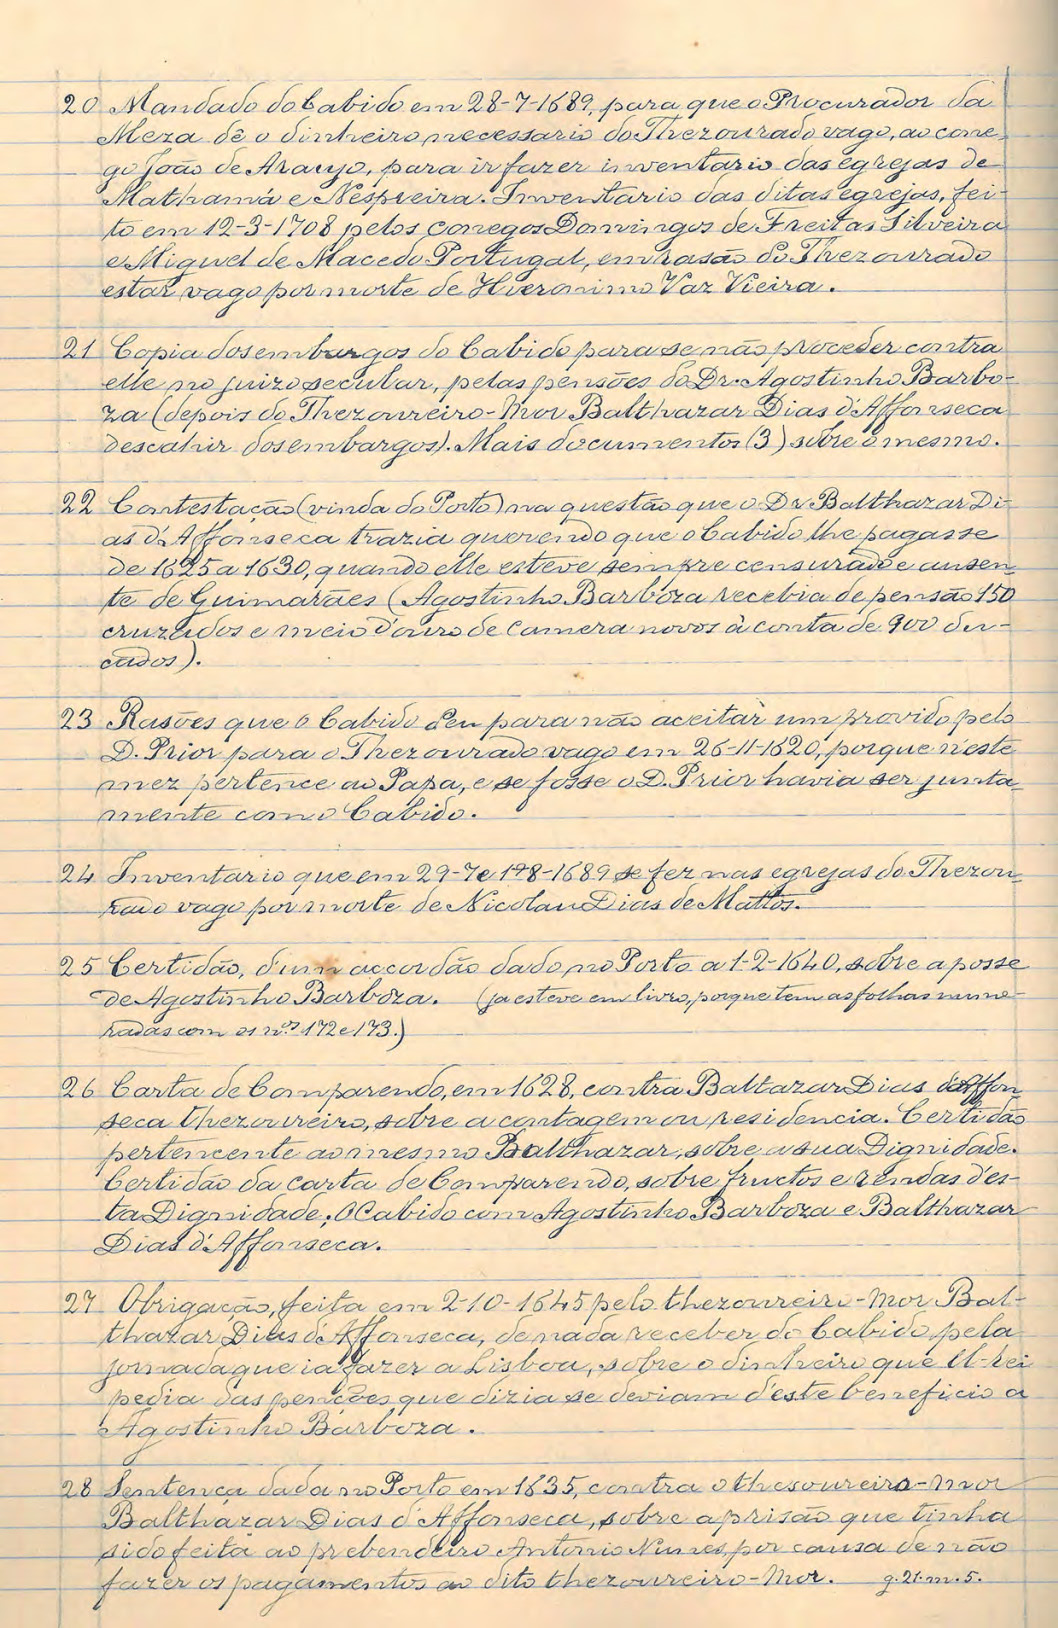 20 Mandado do Cabido em 28-7-1689, para que o Procurador da
Meza dê o dinheiro necessario do Thezourado vago, ao cone-
go João de Araujo, para ir fazer inventario das egrejas de
Mathamá e Nespreira. Inventario das ditas egrejas, fei-
to em 12-3-1708 pelos conegos Domingos de Freitas Silveira
e Miguel de Macedo Portugal, em rasão do Thezourado
estar vago por morte de Hieronimo Vaz Vieira.
21 Copia dos embargos do Cabido para se não proceder contra
elle no juizo secular, pelas pensões do Dr. Agostinho Barbo-
za (depois do Thezoureiro-Mor Balthazar Dias d'Affonseca
descahir dos embargos). Mais documentos (3) sobre o mesmo.
22 Contestação (vinda do Porto) na questão que o Dr Balthazar Di-
as d'Affonseca trazia querendo que o Cabido lhe pagasse
de 1625 a 1630, quando elle esteve sempre censurado e ausen-
te de Guimarães (Agostinho Barboza recebia de pensão 150
cruzados e meio d'ouro de camera novos à conta de 900 du-
cados).
23 Rasões que o Cabido deu para não aceitar um provido pelo
D. Prior para o Thezourado vago em 26-11-1620, porque n'este
mez pertence ao Papa, e se fosse o D. Prior havia ser junta-
mente com o Cabido.
24 Inventario que em 29-7 e 1º8-1689 se fez nas egrejas do Thezou-
rado vago por morte de Nicolau Dias de Mattos.
25 Certidão, d'um accordão dado no Porto a 1-2-1640, sobre a posse
de Agostinho Barboza. (ja esteve em livro, porque tem as folhas nume-
radas com os nos 172 e 173.)
26 Carta de Comparendo, em 1628, contra Baltazar Dias d'Affon
seca thezoureiro, sobre a contagem ou residencia. Certidão
pertencente ao mesmo Balthazar, sobre a sua Dignidade.
Certidão da carta de Comparendo, sobre fructos e rendas d'es-
ta Dignidade; O Cabido com Agostinho Barboza e Balthazar
Dias d'Affonseca.
27 Obrigação, feita em 2-10-1645 pelo thezoureiro-Mor Bal-
thazar Dias d'Affonseca, de nada receber do Cabido, pela
jornada que ia fazer a Lisboa, sobre o dinheiro que El-rei
pedia das penções que dizia se deviam d'este beneficio a
Agostinho Barboza.
28 Sentença dada no Porto em 1635, contra o thesoureiro-mor
Balthazar Dias d'Affonseca, sobre a prisão que tinha
sido feita ao prebendeiro Antonio Nunes, por causa de não
fazer os pagamentos ao dito thezoureiro-Mor. g. 21. m. 5.